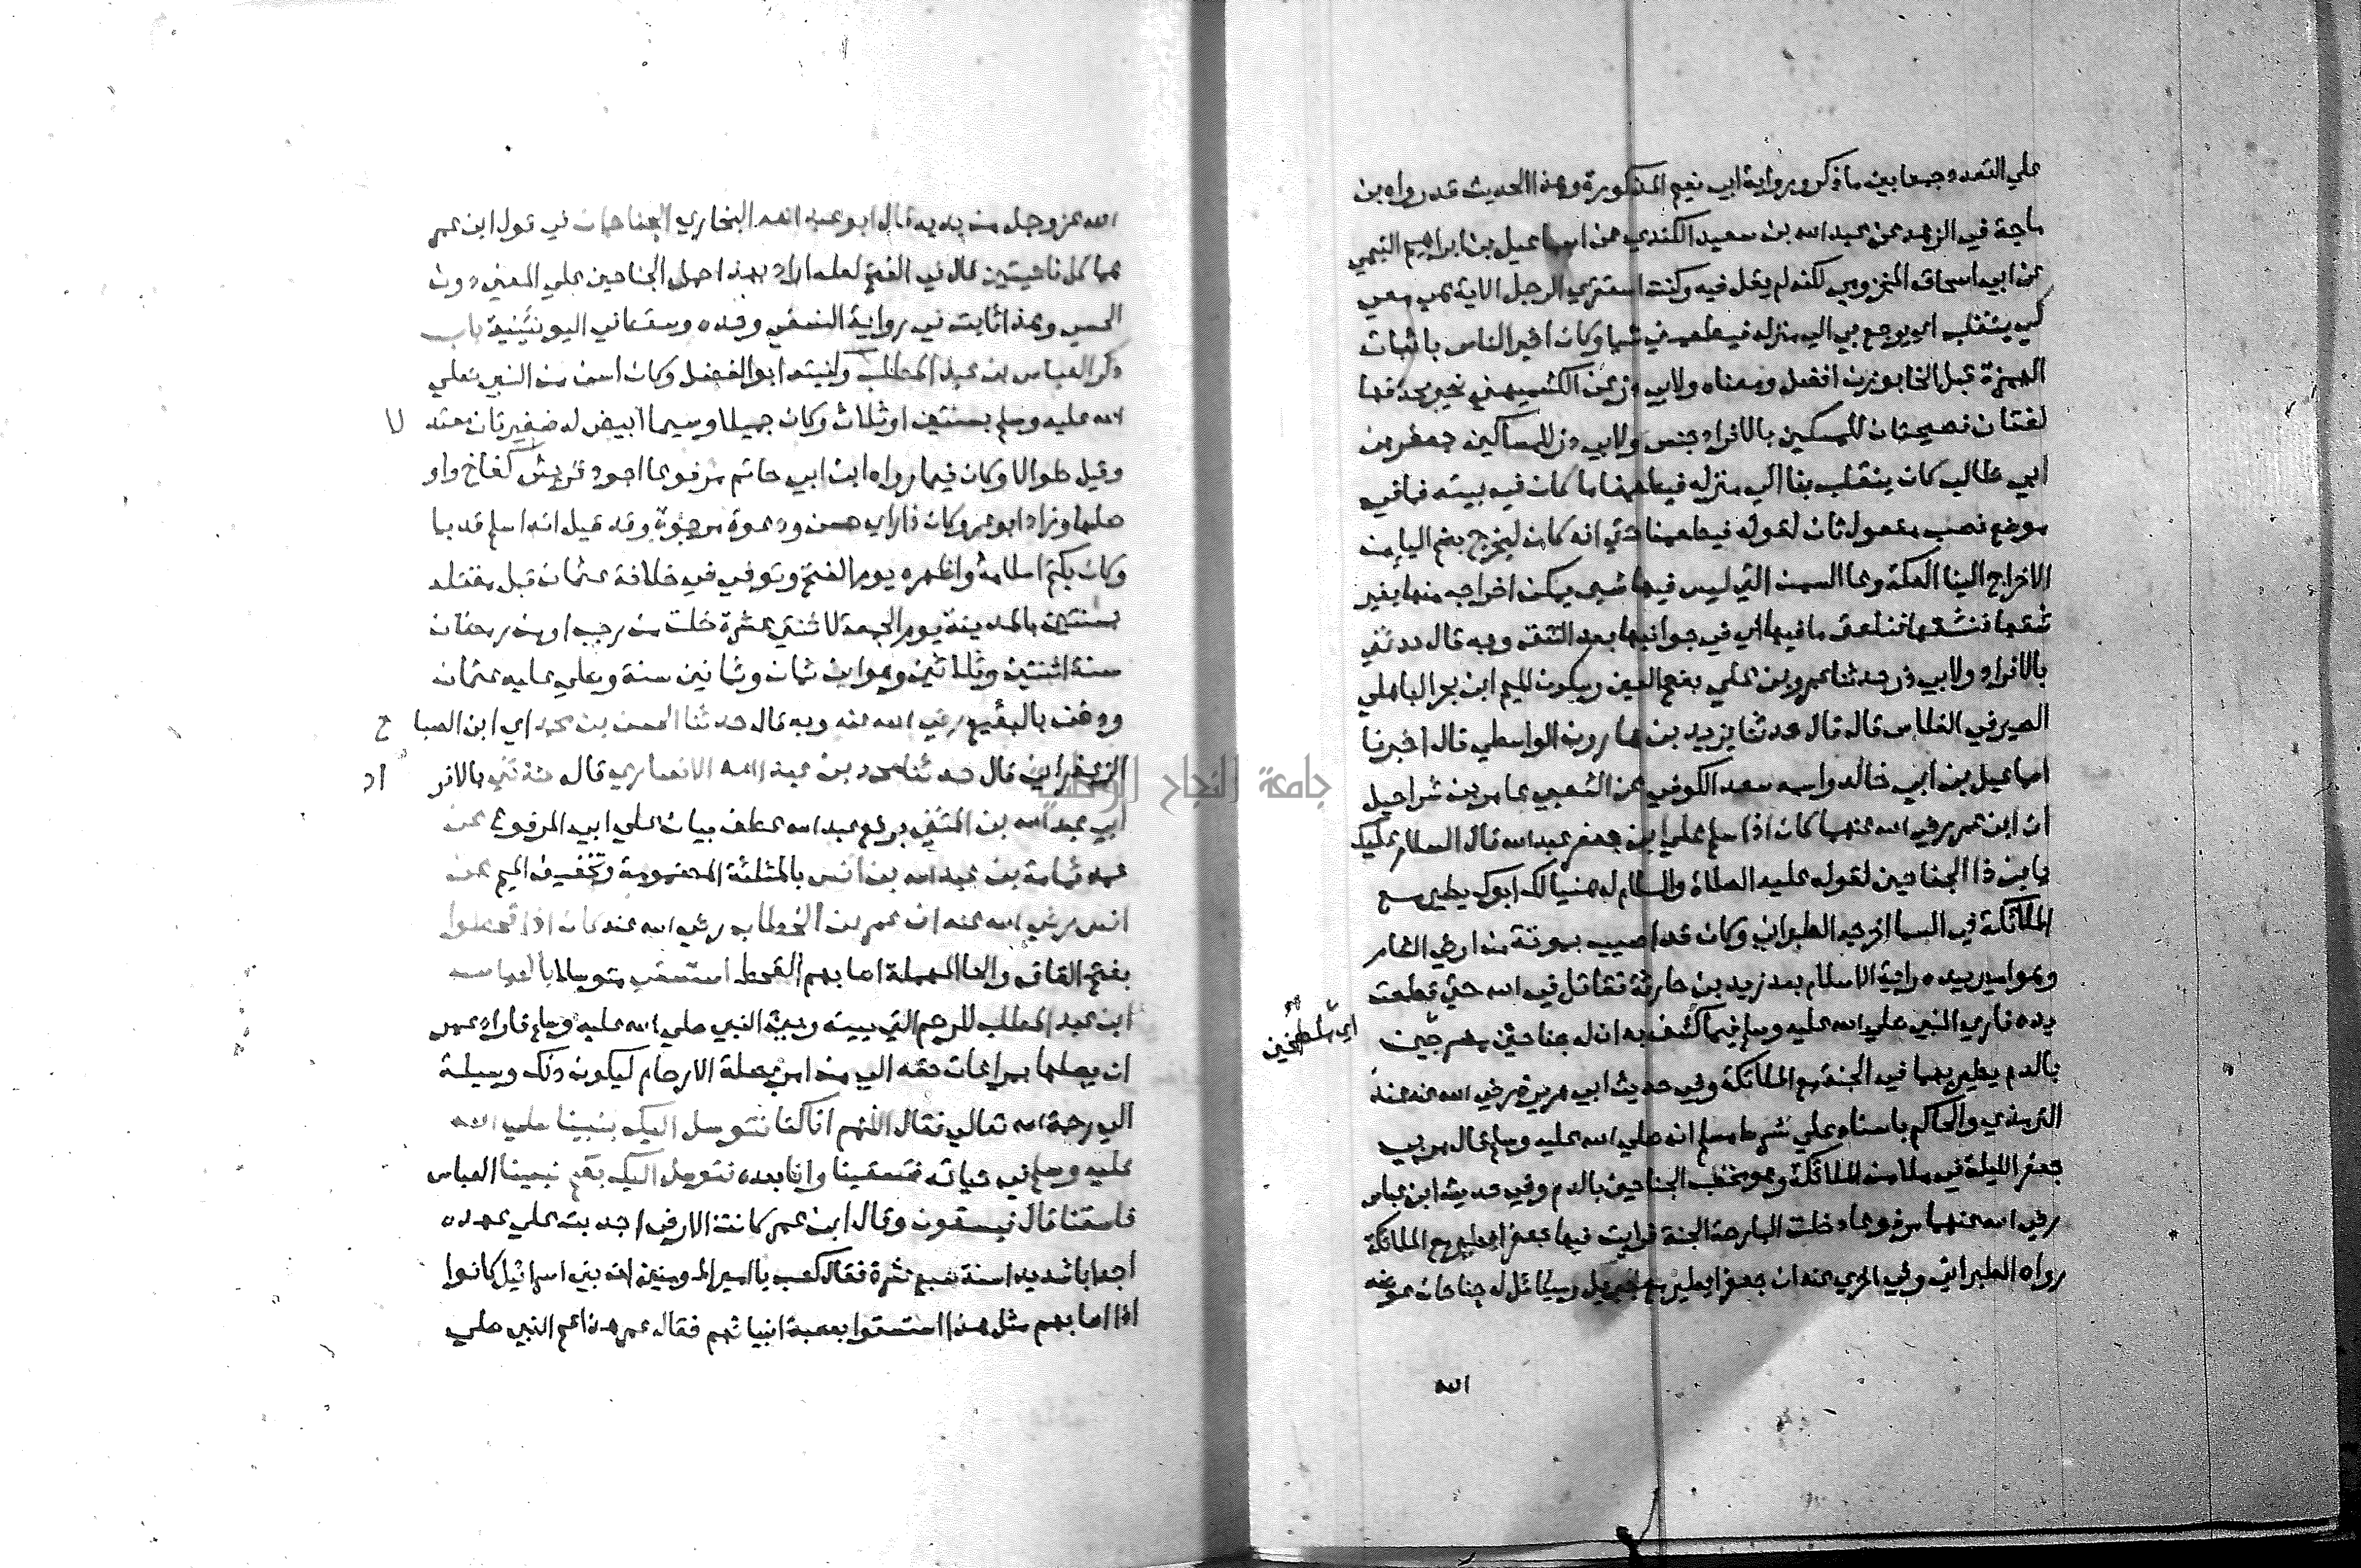 علي التعدد وجمعا بين ما ذكر وبرواية ابي نعيم المذكورة وهذا الحديث قد رواه بن
ماجة في الزهد عن عبد الله بن سعيد الكندي عن اسماعيل بن ابراهيم التيمي
عن ابي اسحاق المخزومي لكنه لم يقل فيه وكنت استقري الرجل الاية هي معي
كي ينقلب اي يرجع بي الي منزله فيطعمني شيا وكان اخير الناس باثبات
الهمزة قبل الخا بوزن افضل ومعناه ولابي ذر عن الكشميهني خير بحذفها
لغتان فصيحتان للمسكين بالافراد جنس ولابي ذر للمساكين جعفر بن
ابي طالب كان ينقلب بنا الي منزله فيطعمنا ما كان في بيته فما في
موضع نصب مفعول ثان لقوله فيطعمنا حتي انه كان ليخرج بضم اليا من
الاخراج الينا العكة وعا السمن التي ليس فيها شي يمكن اخراجه منها بغير
شقها فنشقها فنلعق ما فيها اي في جوانبها بعد الشق وبه قال حدثني
بالافراد ولابي ذر حدثنا عمرو بن علي بفتح العين وسكون الميم ابن بحر الباهلي
الصيرفي الفلاس قال قال حدثنا يزيد بن هارون الواسطي قال اخبرنا
اسماعيل بن ابي خالد واسمه سعد الكوفي عن الشعبي عامر بن شراحيل
ان ابن عمر رضي الله عنهما كان اذا سلم علي ابن جعفر عبد الله قال السلام عليك
يا بن ذا الجناحين لقوله عليه الصلاة والسلام له هنيا لك ابوك يطير مع
الملائكة في السما اخرجه الطبراني وكان قد اصيب بموتة من ارض الشام
وهو امير بيده راية الاسلام بعد زيد بن حارثة فقاتل في الله حتي قطعت
يده فاري النبي صلي الله عليه وسلم فيما كشف به ان له جناحين مضرجين
اي ملطخين
بالدم يطير بهما في الجنة مع الملائكة وفي حديث ابي هريرة رضي الله عنه عند
الترمذي والحاكم باسناد علي شرط مسلم انه صلي الله عليه وسلم قال مر بي
جعفر الليلة في ملا من الملائكة وهو مخضب الجناحين بالدم وفي حديث ابن عباس
رضي الله عنهما مرفوعا دخلت البارحة الجنة فرايت فيها جعفرا يطير مع الملائكة
رواه الطبراني وفي اخري عنه ان جعفرا يطير مع جبريل وميكائل له جناحان عوضه
الله
الله عز وجل من يديه قال ابو عبد الله البخاري الجناحان في قول ابن عمر
هما كل ناحيتين قال في الفتح لعله اراد بهذا حمل الجناحين علي المعني دون
الحسي وهذا ثابت في رواية النسفي وحده وسقط في اليونينية باب
ذكر العباس بن عبد المطلب وكنيته ابو الفضل وكان اسن من النبي صلي
الله عليه وسلم بسنتين او ثلاث وكان جميلا وسيما ابيض له ضفيرتان معتد لا
وقيل طوالا وكان فيما رواه ابن ابي حاتم مرفوعا اجود قريش كفا خ واو
صلها وزاد ابو عمر وكان ذا راي حسن ودعوة مرجوة وقد قيل انه اسلم قديما
وكان يكتم اسلامه واظهره يوم الفتح وتوفي في خلافة عثمان قبل مقتله
بسنتين بالمدينة يوم الجمعة لاثنتي عشرة خلت من رجب او من رمضان
سنة اثنتين وثلاثين وهو ابن ثمان وثمانين سنة وصلي عليه عثمان
ودفن بالبقيع رضي الله عنه وبه قال حدثنا الحسن بن محمد اي ابن الصبا ح
الزعفراني قال حدثنا محمد بن عبد الله الانصاري قال حدثني بالافر اد
ابي عبد الله بن المثني برفع عبد الله عطف بيان علي ابي المرفوع عن
عمه ثمامة بن عبد الله بن انس بالمثلثة المضمومة وتخفيف الميم عن
انس رضي الله عنه ان عمر بن الخطاب رضي الله عنه كان اذا قحطوا
بفتح القاف والحا المهملة اصابهم القحط استسقي متوسلا بالعباس
ابن عبد المطلب للرحم التي بينه وبين النبي صلي الله عليه وسلم فاراد عمر
ان يصلها بمراعات حقه الي من امر بصلة الارحام ليكون ذلك وسيلة
الي رحمة الله تعالي فقال اللهم انا كنا نتوسل اليك بنبينا صلي الله
عليه وسلم في حياته فتسقينا وانا بعده نتوسل اليك بعم نبينا العباس
فاسقنا قال فيسقون وقال ابن عمر كانت الارض اجدبت علي عهده
اجدابا شديدا سنة سبع عشرة فقال كعب يا امير المومنين ان بني اسرائيل كانوا
اذا اصابهم مثل هذا استسقوا بعصبة انبيائهم فقال عمر هذا عم النبي صلي
جامعة النجاح الوطنية